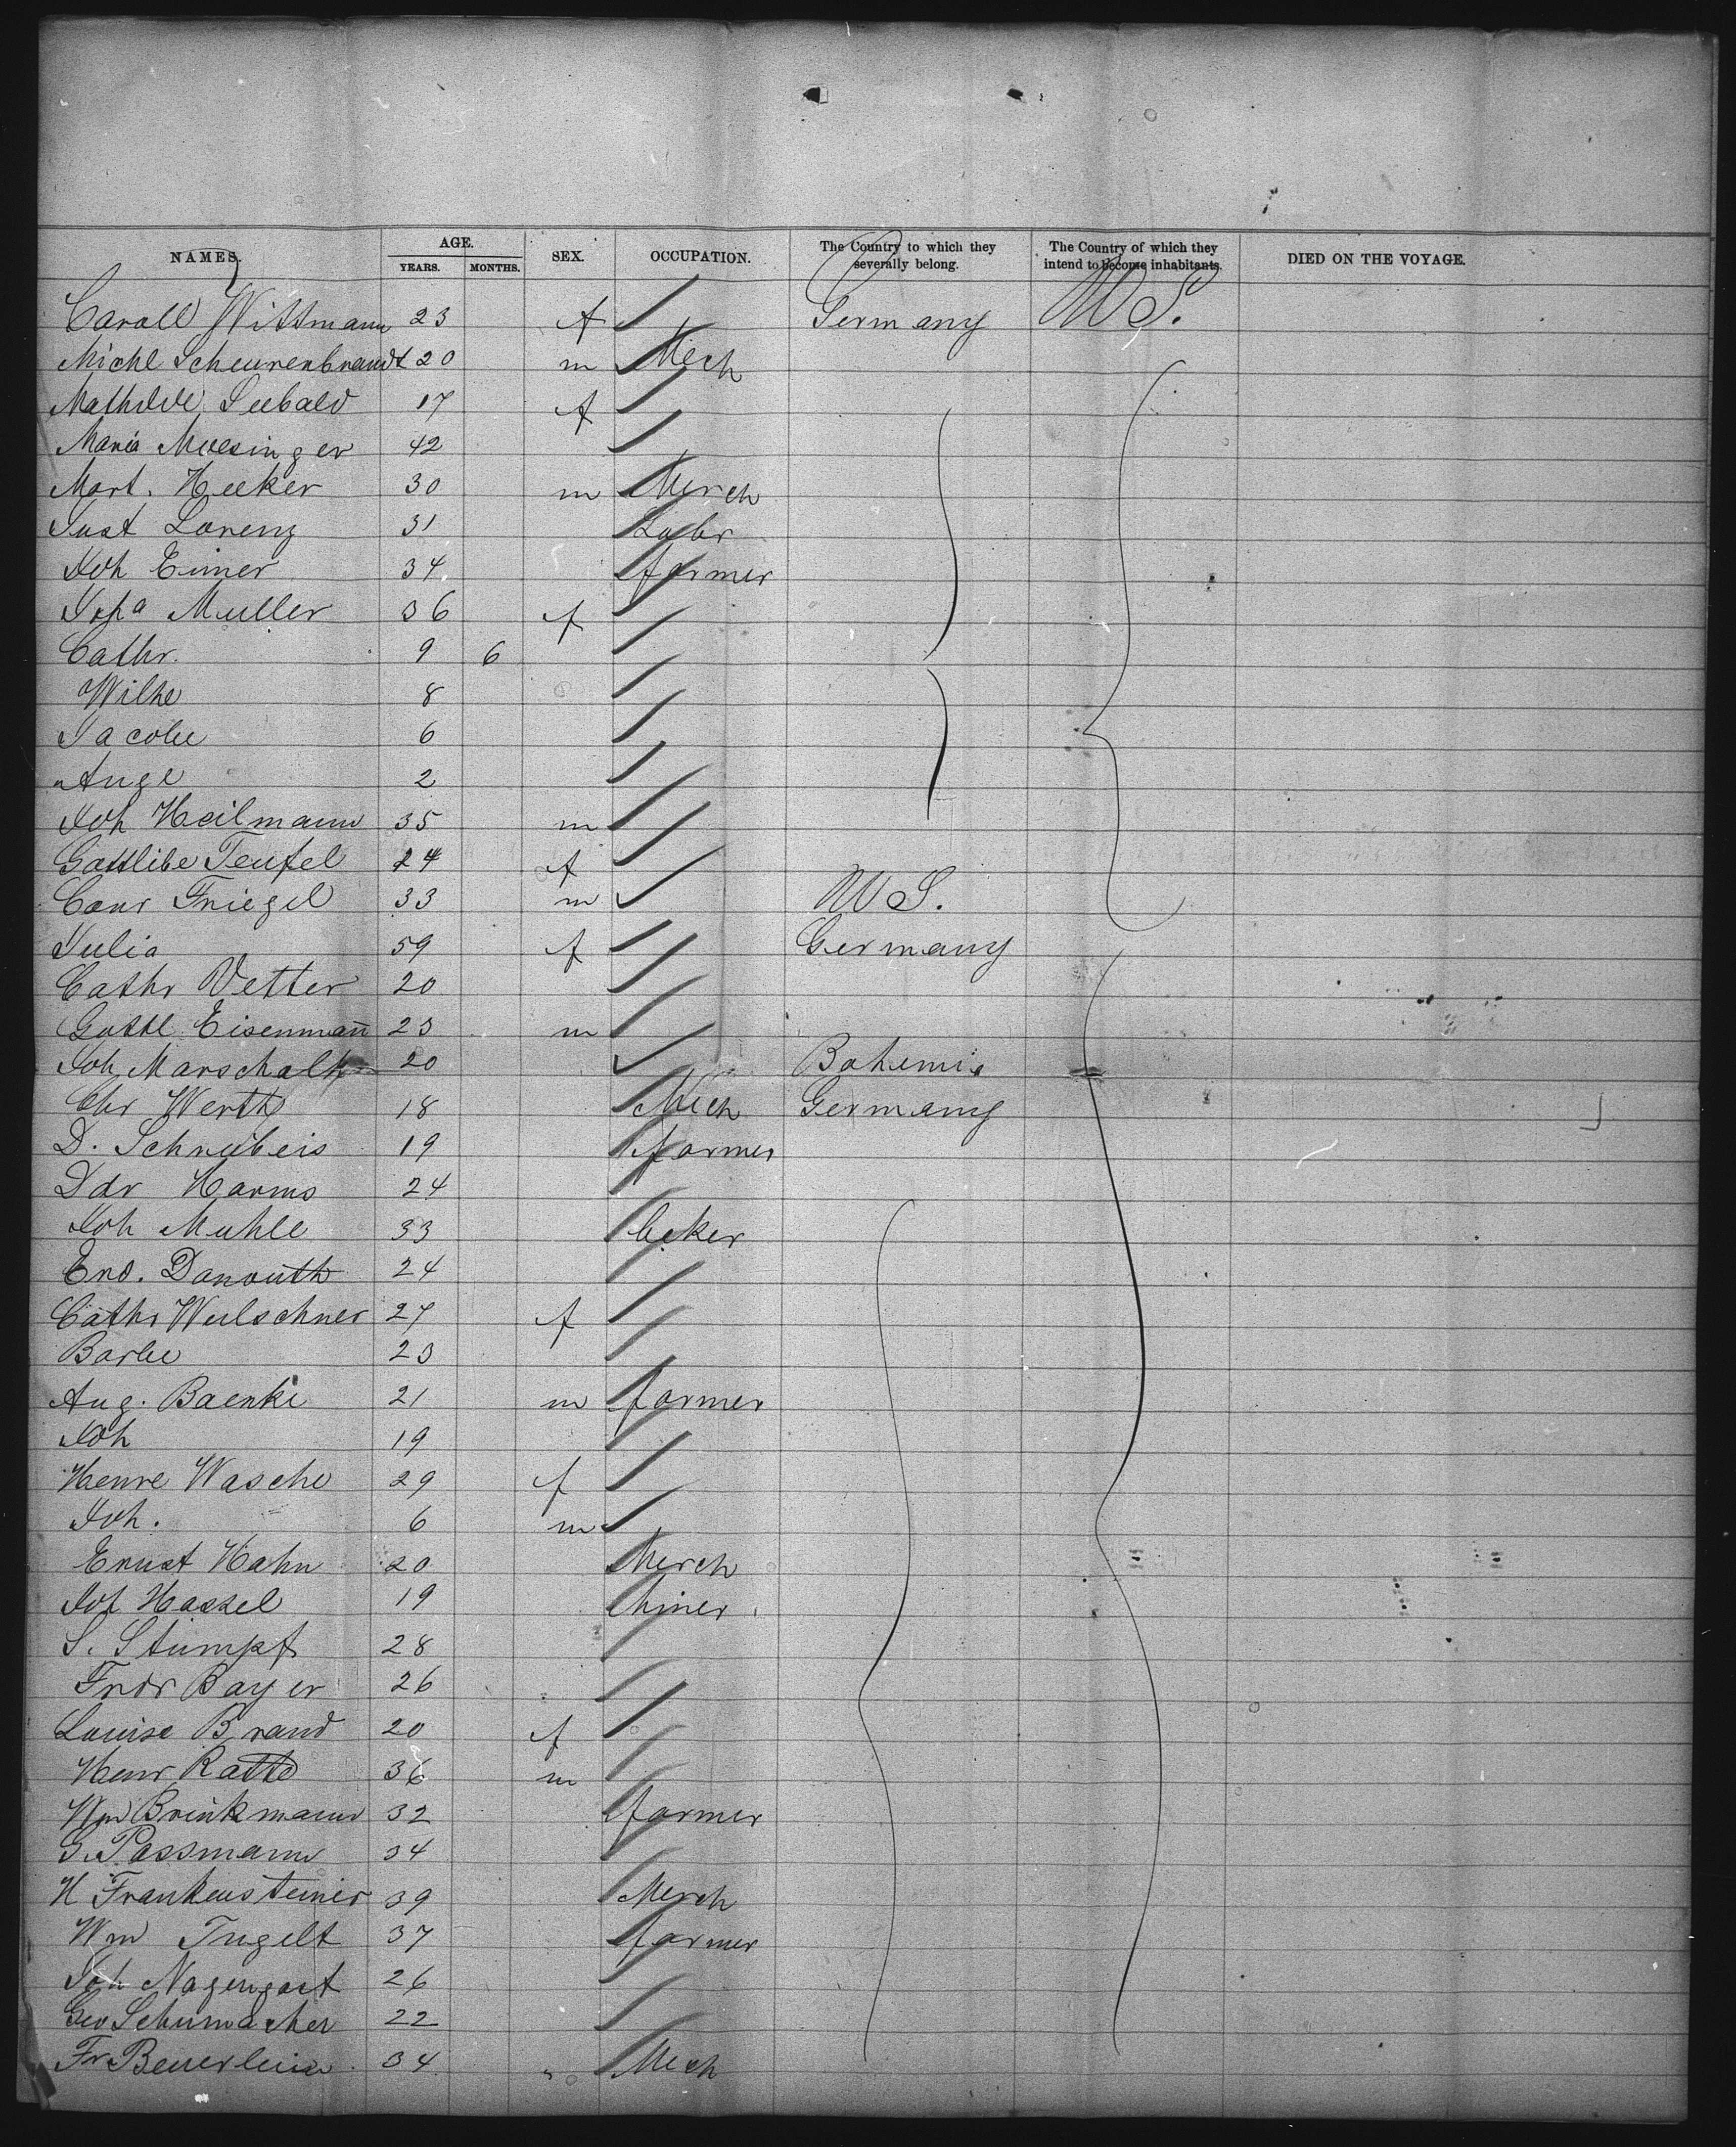 NAMES. AGE. YEARS. MONTHS. SEX. OCCUPATION. The Country to which they severally belong. The Country of which they intend to become inhabitants. DIED ON THE VOYAGE.
Caroll Wittmann 23 f Germany US.
Michl Scheurenbrandt 20 m Mech
Mathilde Seebald 17 f
Maria Moesinger 42
Mart. Heeker 30 m Merch
Just Lorenz 31 Labr
Joh Eimer 34. farmer
Muller 36 f
Cathr. 9 6
Wilhe 8
Jacobe 6
Auge 2
Joh Heilmann 35 m
Gottlibe Teufel 24 f
Conr Friegel 33 m US.
Julia 59 f Germany
Cathr Vetter 20
Gottl. Eisenman̄ 23 m
Joh Marschalk 20 Bohemia
Chr Werth 18 Mech Germany
D. Schnubeis 19 farmer
Ddr Harms 24
Joh Muhle 33 beker
End. Danouth 24
Cathr Wulschner 27 f
Barbe 23
Aug. Baenke 21 m farmer
Joh 19
Henre Wasche 29 f
Joh. 6 m
Ernst Hahn 20 Merch
Joh Hassel 19 Miner
S. Stumpf 28
Fridr Bayer 26
Louise Brand 20 f
Henr Ratte 36 m
Wm Brinkmann 32 farmer
G. Passmann 34
H Frankensteiner 39 Merch
Wm Ingelt 37 farmer
Joh Nagengast 26
Geo Schumacher 22
Fr. Beuerlein 34 " Mech